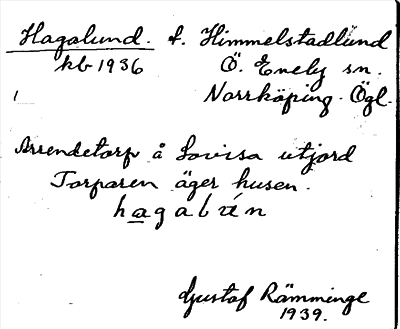 Hagalund. f. Himmelstadlund
kb 1936 Ö. Eneby sn.
1 Norrköping. Ögl.
Arrendetorp å Lovisa utjord
Torparen äger husen.
hagabún
Gustaf Rämminge
1939.